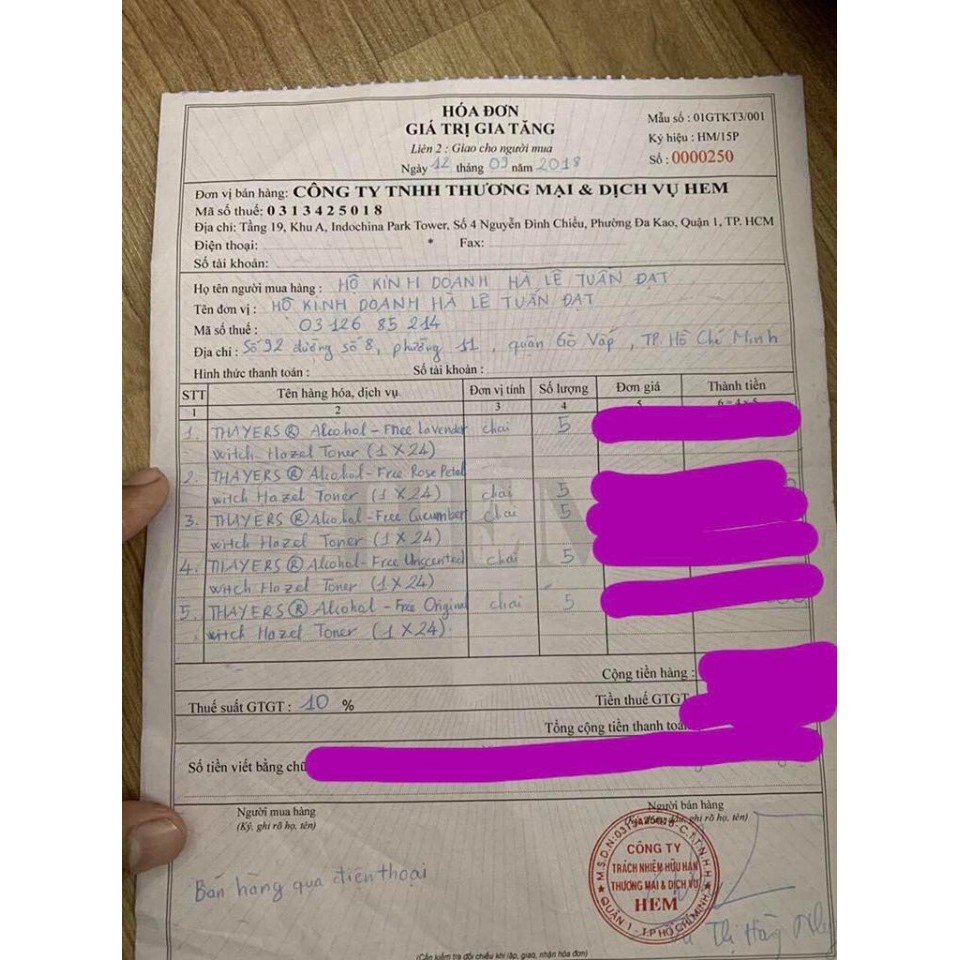 HÓA ĐƠN
GIÁ TRỊ GIA TĂNG
Liên 2 : Giao cho người mua
Ngày 12 tháng 09 năm 2018
Mẫu số : 01GTKT3/001
Ký hiệu : HM/15P
Số : 0000250
Đơn vị bán hàng: CÔNG TY TNHH THƯƠNG MẠI & DỊCH VỤ HEM
Mã số thuế: 0313425018
Địa chỉ: Tầng 19, Khu A, Indochina Park Tower, Số 4 Nguyễn Đình Chiểu, Phường Đa Kao, Quận 1, TP. HCM
Điện thoại: * Fax:
Số tài khoản:
Họ tên người mua hàng : HỘ KINH DOANH HÀ LÊ TUẤN ĐẠT
Tên đơn vị : HỘ KINH DOANH HÀ LÊ TUẤN ĐẠT
Mã số thuế : 03126 85 214
Địa chỉ : Số 92 đường số 8, phường 11, quận Gò Vấp, TP. Hồ Chí Minh
Hình thức thanh toán : Số tài khoản :
STT Tên hàng hóa, dịch vụ Đơn vị tính Số lượng Đơn giá Thành tiền
1 2 3 4 5 6 = 4 x 5
1. THAYERS ® Alcohol - Free Lavender chai 5
witch Hazel Toner (1 X 24)
2. THAYERS ® Alcohol - Free Rose Petal
witch Hazel Toner (1 X 24) chai 5
3. THAYERS ® Alcohol - Free Cucumber chai 5
witch Hazel Toner (1 X 24)
4. THAYERS ® Alcohol - Free Unscented chai 5
witch Hazel Toner (1 X 24)
5. THAYERS ® Alcohol - Free Original chai 5
witch Hazel Toner (1 X 24).
HEM
Cộng tiền hàng :
Thuế suất GTGT : 10 % Tiền thuế GTGT
Tổng cộng tiền thanh toán
Số tiền viết bằng chữ
Người mua hàng
(Ký, ghi rõ họ, tên)
Người bán hàng
ghi rõ họ, tên)
Bán hàng qua điện thoại
M.S.D.N:0313425018-C.T.T.N.H.H
CÔNG TY
TRÁCH NHIỆM HỮU HẠN
THƯƠNG MẠI & DỊCH VỤ
HEM
QUẬN 1 - T.P HỒ CHÍ MINH
Thị Hàng
(Cần kiểm tra đối chiếu khi lập, giao, nhận hóa đơn)